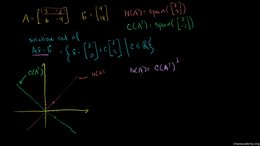 A = [3 -2 6 -4] b = [9 18] N(A) = span([2 3])
C(Aᵀ) = span([3 -2])
solution set of
Ax = b = { x = [3 0] + c[2 3] | c ∈ R }
C(Aᵀ)
N(A)
N(A) = C(Aᵀ)⊥
khanacademy.org